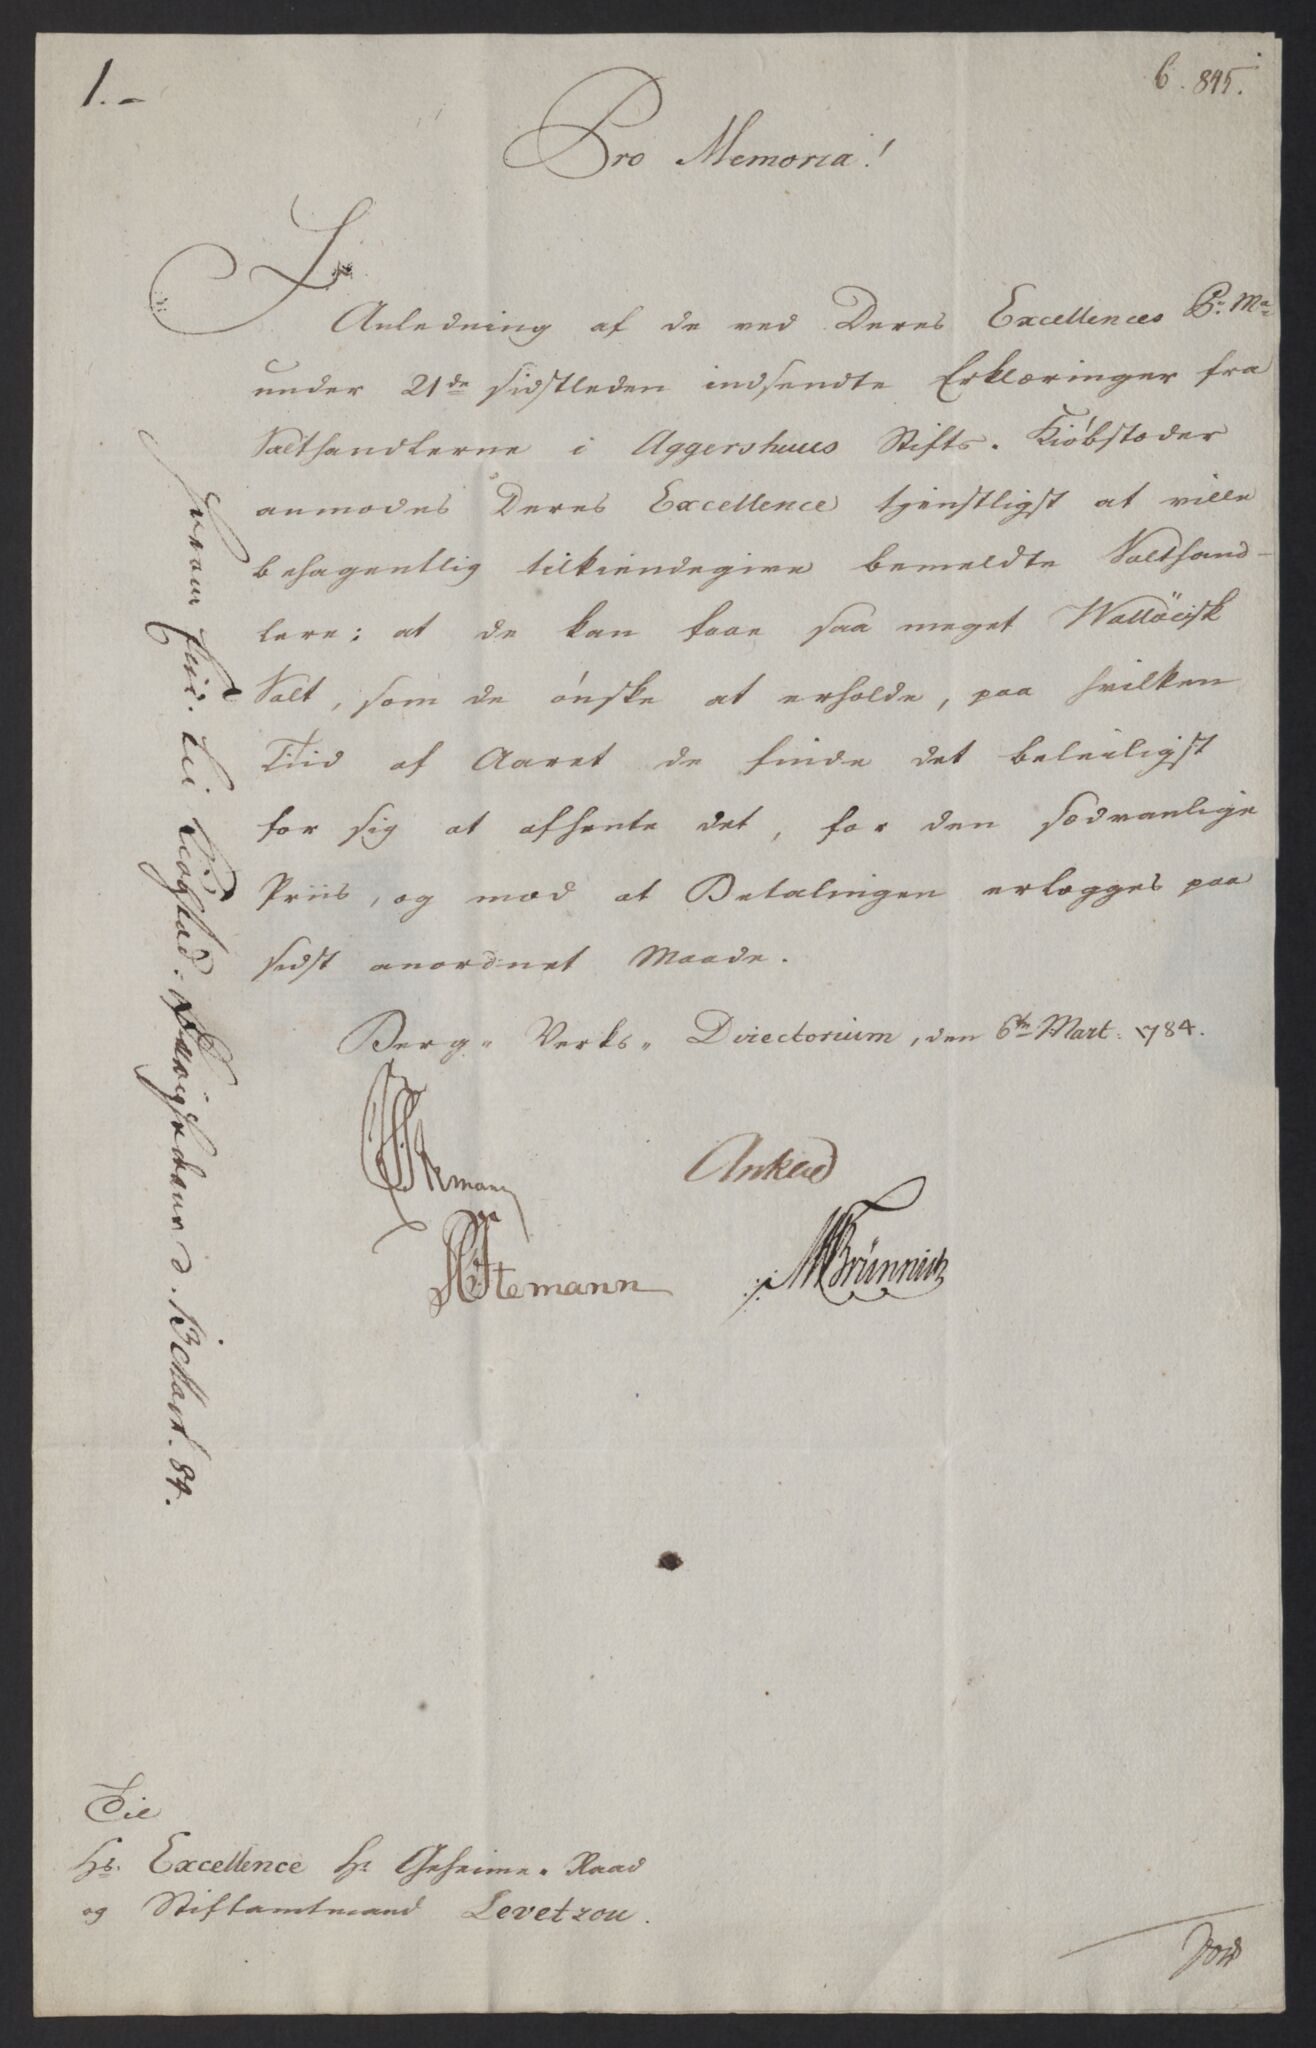 1.-
6. 845.
Pro Memoria!
I
Anledning af de ved Deres Excellences P. Ma
under 21de sidstleden indsendte Erklæringer fra
Salthandlerne i Aggershuus Stifts. Kiøbstæder
anmodes Deres Excellence tjenstligst at ville
behagentlig tilkiendegive bemeldte Salthand-
lere: at de kan faae saa meget Walløeisk
Salt, som de ønske at erholde, paa hvilken
Tiid af Aaret de finde det beleiligst
for sig at afhente det, for den sædvanlige
Priis, og mod at Betalingen erlægges paa
sidst anordnet Maade.
Berg- Verks- Directorium, den 6te Mart. 1784.
Stemann Anker
Stemann MBrünnich
d. 13 Mart. 84.
Til
Hs. Excellence Hr Geheime- Raad
og Stiftamtmand Levetzou.